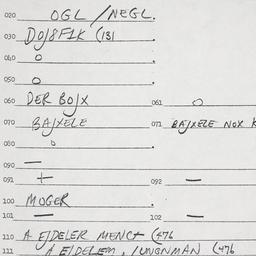 020 OGL/NEGL.
030 DOJ8F1K (131
040 0
050 0
060 DER BOJX 061 0
070 BAJXELE 071 BAJXELE NOX K
080 0
090 —
091 + 092 —
100 MOGER
101 — 102 —
110 A EJDELER MENC+ (476
111 A EJDELEM, /UNGNMAN (476